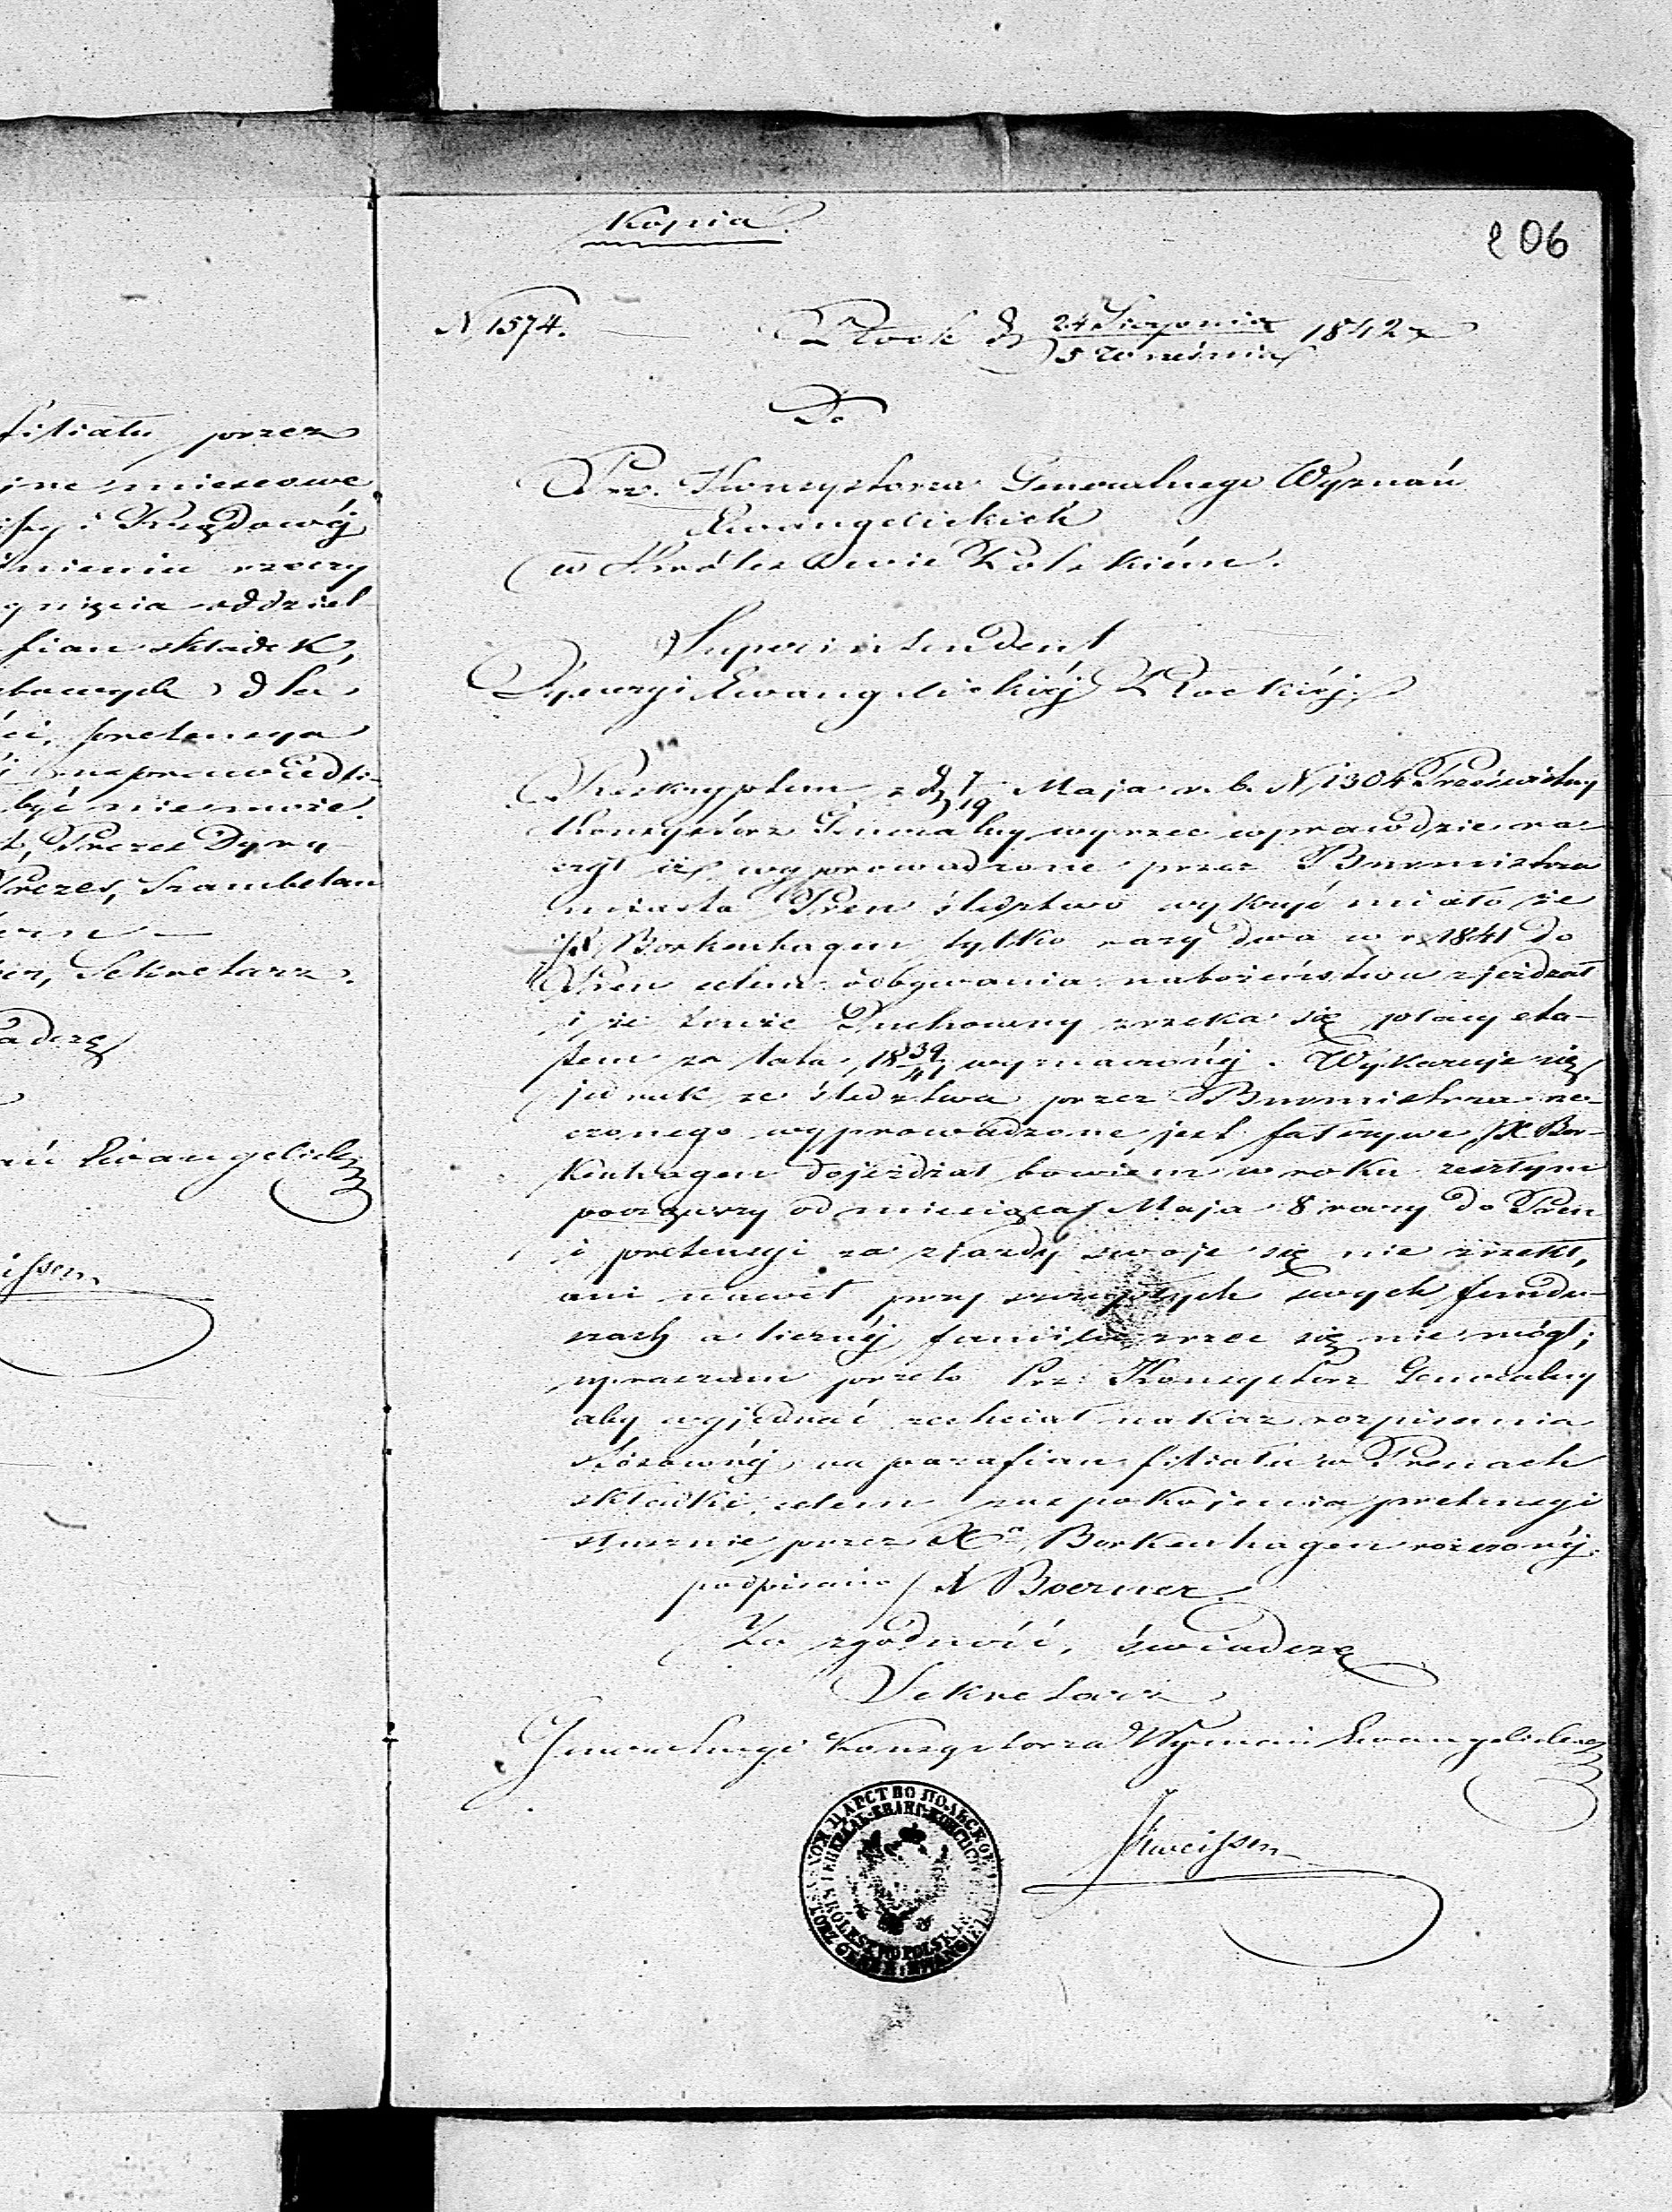 filiału przez
jne miejscowe
i Rządowéj
śnieniu rzeczy
gnięcia oddziel-
fian składek,
dla
ci, pretensya
usprawiedli-
być nie może.
Prezes Dyre-
Prezes, Szambelan
Sekretarz.
adczę
ań Evangelickich
Kopia.
206
N 1574.
Płock d. 24 Sierpnia / 5 Września 1842 r.
Do
Prz. Konsystorza Generalnego Wyznań
Ewangelickich
w Królestwie Polskiém.
Superintendent
Dyecezyi Ewangelickiéj Płockiéj.
Reskryptem z d. 7/19 Maja r. b. N 1304 Prześwietny
Konsystórz Generalny wyrzec wprawdzie ra-
czył iż wyprowadzone przez Burmistrza
miasta Pren śledztwo wykryć miało że
JX Borkenhagen tylko razy dwa w r. 1841 do
Pren celem odbywania nabożeństwa zjeżdzał
i że tenże Duchowny zrzeka się płacy eta-
tem za lata 18 39/41 wyznaczonéj. Wykazuje się
jednak że śledztwo przez Burmistrza rze-
czonego wyprowadzone jest fałszywe, JX Bor-
kenhagen dojeżdżał bowiem w roku zeszłym
począwszy od miesiąca Maja 8 razy do Pren
i pretensyi za zjazdy swoje się nie zrzekł,
ani nawet przy szczupłych swych fundu-
szach a licznéj familii zrzec się nie mógł;
upraszam przeto Prz. Konsystorz Generalny
aby wyjednać zechciał nakaz rozpisania
stósownéj na parafian filiału w Prenach
składki, celem zaspokojenia pretensyi
słusznie przez Xa Borkenhagen roszczonéj.
podpisano Boerner.
Za zgodność, świadczę
Sekretarz
Generalnego Konsystorza Wyznań Ewangelickich
ЦАРСТВО ПОЛЬСКОЕ
KRÓLESTWO POLSKIE